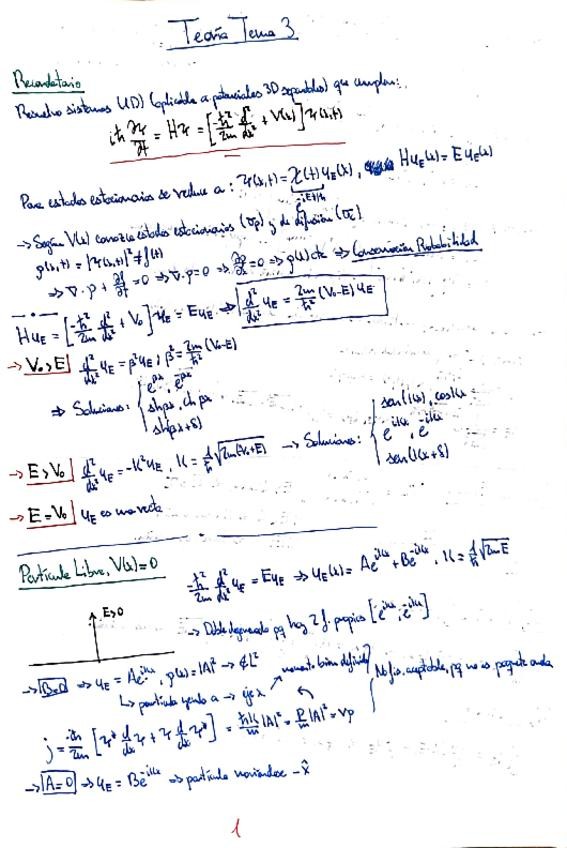 Teoría Tema 3
Recordatorio
Resuelvo sistemas (1D) (aplicable a potenciales 3D separables) que cumplen:
iħ ∂Ψ/∂t = HΨ = [-ħ²/2m d²/dx² + V(x)] Ψ(x,t)
Para estados estacionarios se reduce a: Ψ(x,t) = χ(t) u_E(x), H u_E(x) = E u_E(x)
e^{-iEt/ħ}
→ Según V(x) conozco estados estacionarios (σp) y de difusión (σc)
ρ(x,t) = |Ψ(x,t)|² ≠ f(t)
⇒ ∇·ρ + ∂f/∂t = 0 ⇒ ∇·ρ = 0 ⇒ ∂ρ/∂x = 0 ⇒ ρ(x) cte ⇒ Conservación Probabilidad
H u_E = [-ħ²/2m d²/dx² + V₀] u_E = E u_E ⇒ d²/dx² u_E = 2m/ħ² (V₀-E) u_E
→ V₀>E | d²/dx² u_E = β² u_E; β² = 2m/ħ² (V₀-E)
⇒ Soluciones: { e^{βx}, e^{-βx}
shβx, chβx
sh(βx+δ)
→ E>V₀ | d²/dx² u_E = -K² u_E, K = 1/ħ √2m(-V₀+E) → Soluciones: { sen(Kx), cosKx
e^{iKx}, e^{-iKx}
sen(Kx+δ)
→ E=V₀ | u_E es una recta
Partícula Libre, V(x)=0
-ħ²/2m d²/dx² u_E = E u_E ⇒ u_E(x) = Ae^{iKx} + Be^{-iKx}, K = 1/ħ √2mE
E>0
→ Doble degenerado pq hay 2 f. propias [e^{-iKx}, e^{iKx}]
→ B=0 ⇒ u_E = Ae^{iKx}, ρ(x) = |A|² → ∉L²
momento bien definido
No fís. aceptable, pq no es paquete onda
↳ partícula yendo a → eje x
j = -iħ/2m [Ψ* d/dx Ψ + Ψ d/dx Ψ*] = ħK/m |A|² = P/m |A|² = vρ
→ A=0 ⇒ u_E = Be^{-iKx} ⇒ partícula moviéndose -x̂
1